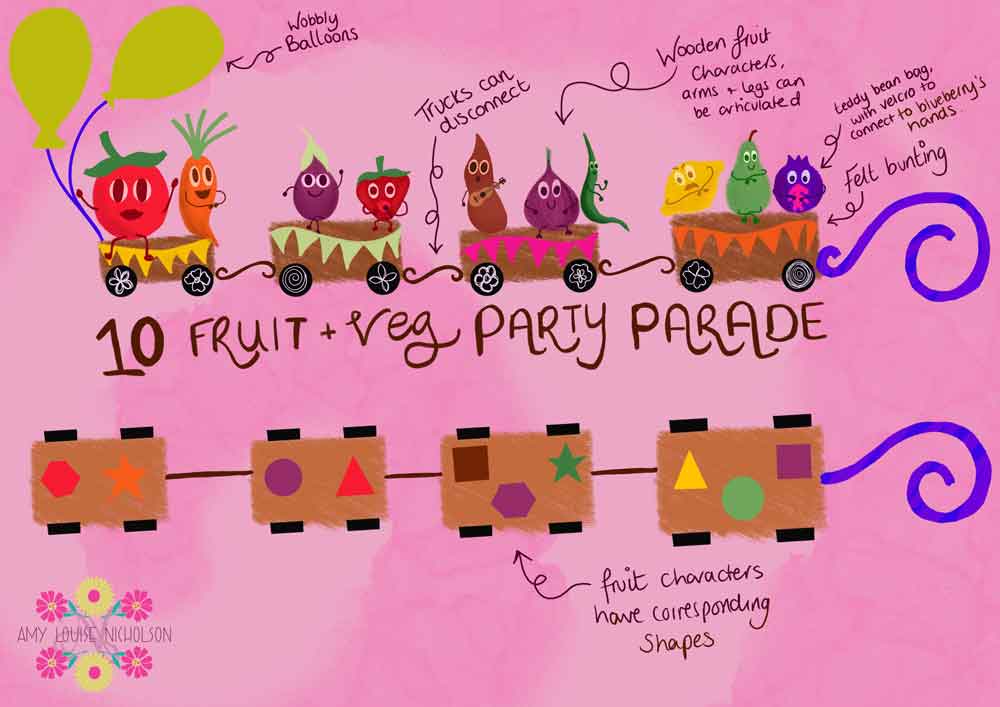 Wobbly
Balloons
Trucks can
disconnect
Wooden fruit
Characters,
arms + legs can
be articulated
teddy bean bag,
with velcro to
connect to blueberry's
hands
Felt bunting
10 FRUIT + Veg PARTY PARADE
fruit characters
have corresponding
Shapes
AMY LOUISE NICHOLSON